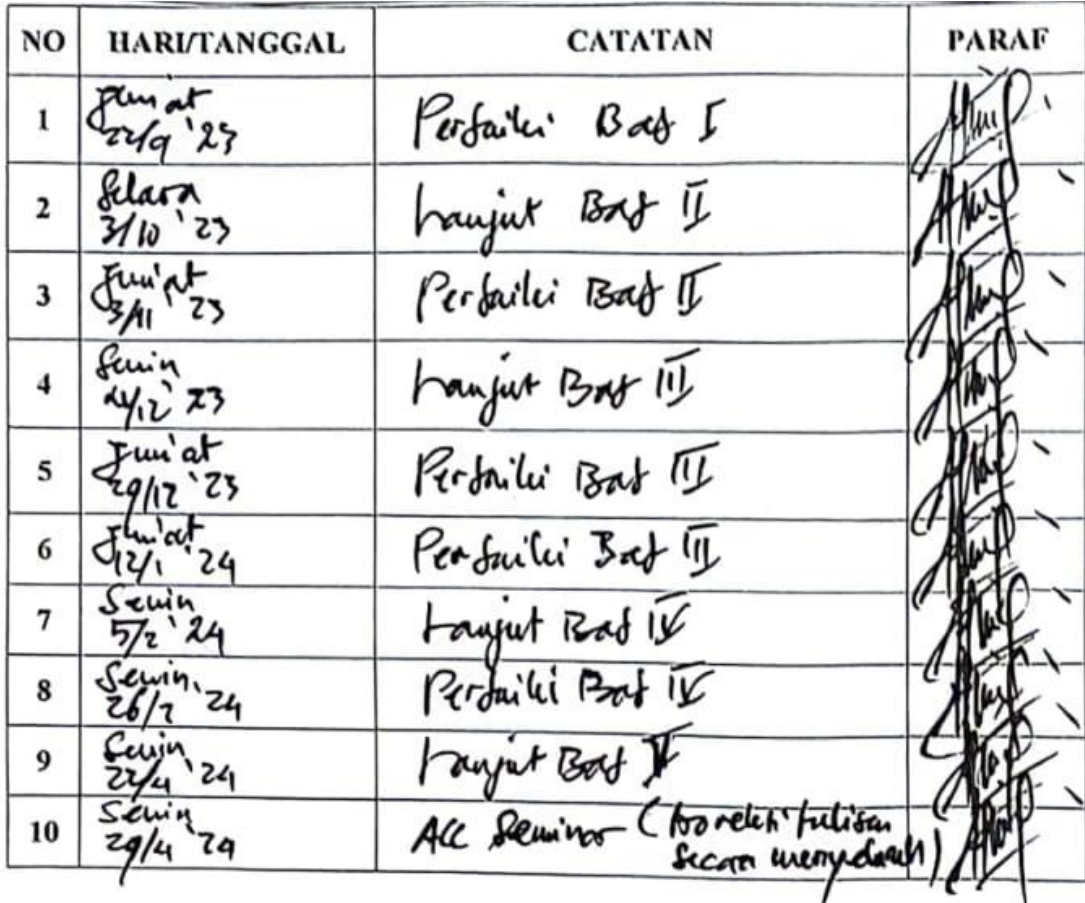 NO HARI/TANGGAL CATATAN PARAF
1 Jum'at 22/9 '23 Perbaiki Bab I
2 Selasa 3/10 '23 Lanjut Bab II
3 Jum'at 3/11 '23 Perbaiki Bab II
4 Senin /12 '23 Lanjut Bab III
5 Jum'at 29/12 '23 Perbaiki Bab III
6 Jum'at 12/1 '24 Perbaiki Bab III
7 Senin 5/2 '24 Lanjut Bab IV
8 Senin, 26/2 '24 Perbaiki Bab IV
9 Senin 22/4 '24 Lanjut Bab V
10 Senin 29/4 '24 ACC Seminar (koreksi tulisan
secara menyeluruh)